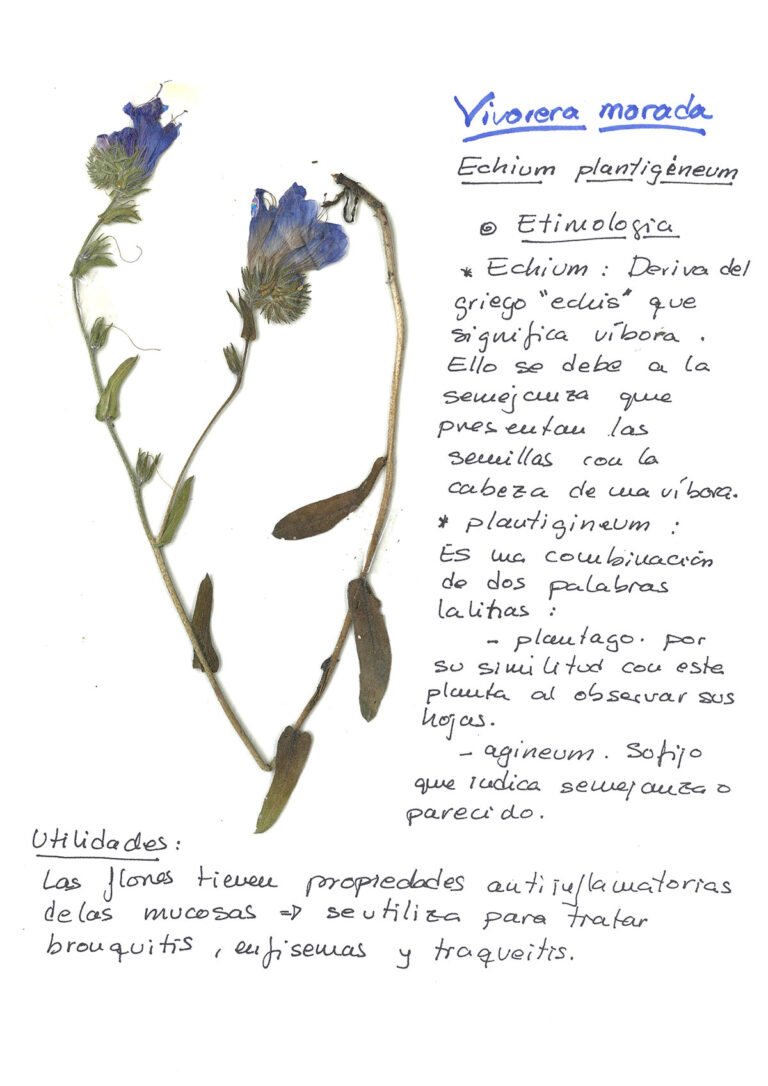 Vivorera morada
Echium plantigéneum
Etimologia
* Echium : Deriva del
griego "echis" que
significa víbora .
Ello se debe a la
semejanza que
presentan las
semillas con la
cabeza de una víbora.
* plantigineum :
Es una combinación
de dos palabras
latinas :
- plantago. por
su similitud con esta
planta al observar sus
hojas.
- agineum . Sofijo
que indica semejanza o
parecido.
Utilidades :
Las flores tienen propiedades antiinflamatorias
de las mucosas => se utiliza para tratar
bronquitis , enfisemas y traqueitis.